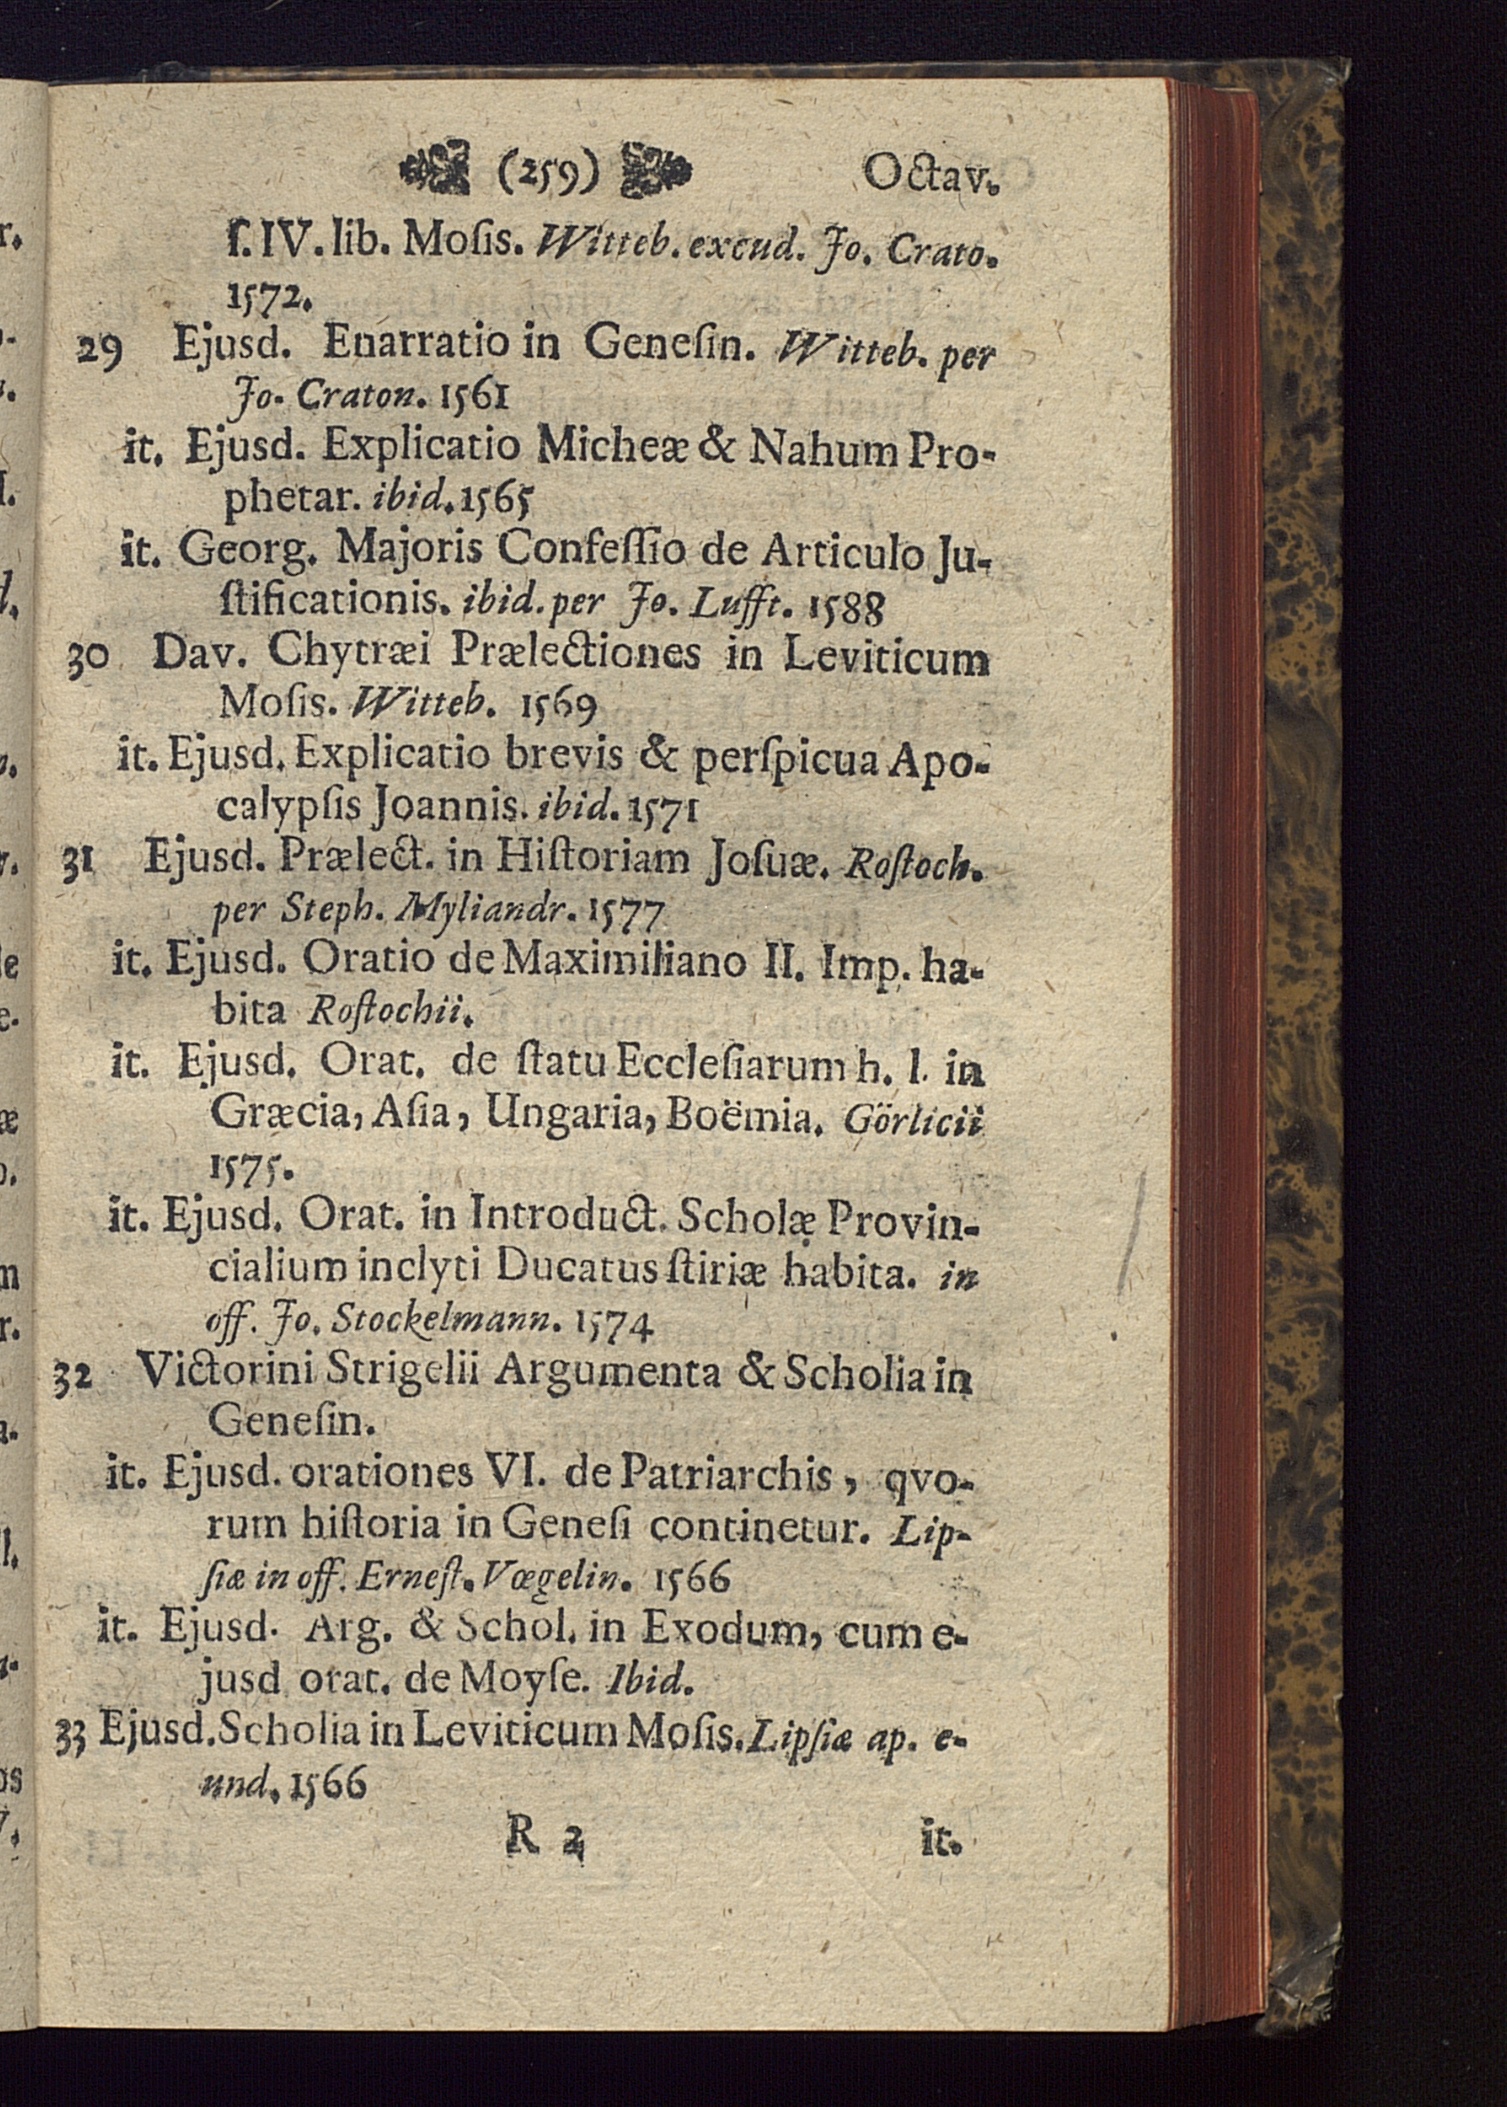 (259) Octav.
ſ. IV. lib. Moſis. Witteb. excud. Jo. Crato.
1572.
29 Ejusd. Enarratio in Geneſin. Witteb. per
Jo. Craton. 1561
it. Ejusd. Explicatio Micheæ & Nahum Pro-
phetar. ibid. 1565
it. Georg. Majoris Confeſſio de Articulo Ju-
ſtificationis. ibid. per Jo. Lufft. 1588
30 Dav. Chytræi Prælectiones in Leviticum
Moſis. Witteb. 1569
it. Ejusd. Explicatio brevis & perſpicua Apo-
calypſis Joannis. ibid. 1571
31 Ejusd. Prælect. in Hiſtoriam Joſuæ. Roſtoch.
per Steph. Myliandr. 1577
it. Ejusd. Oratio de Maximiliano II. Imp. ha-
bita Roſtochii.
it. Ejusd. Orat. de ſtatu Eccleſiarum h. l. in
Græcia, Aſia, Ungaria, Boëmia. Görlicii
1575.
it. Ejusd. Orat. in Introduct. Scholæ Provin-
cialium inclyti Ducatus ſtiriæ habita. in
off. Jo. Stockelmann. 1574
32 Victorini Strigelii Argumenta & Scholia in
Geneſin.
it. Ejusd. orationes VI. de Patriarchis, qvo-
rum hiſtoria in Geneſi continetur. Lip-
ſiæ in off. Erneſt. Vœgelin. 1566
it. Ejusd. Arg. & Schol. in Exodum, cum e-
jusd orat. de Moyſe. Ibid.
33 Ejusd. Scholia in Leviticum Moſis. Lipſiæ ap. e-
und. 1566
R 2 it.